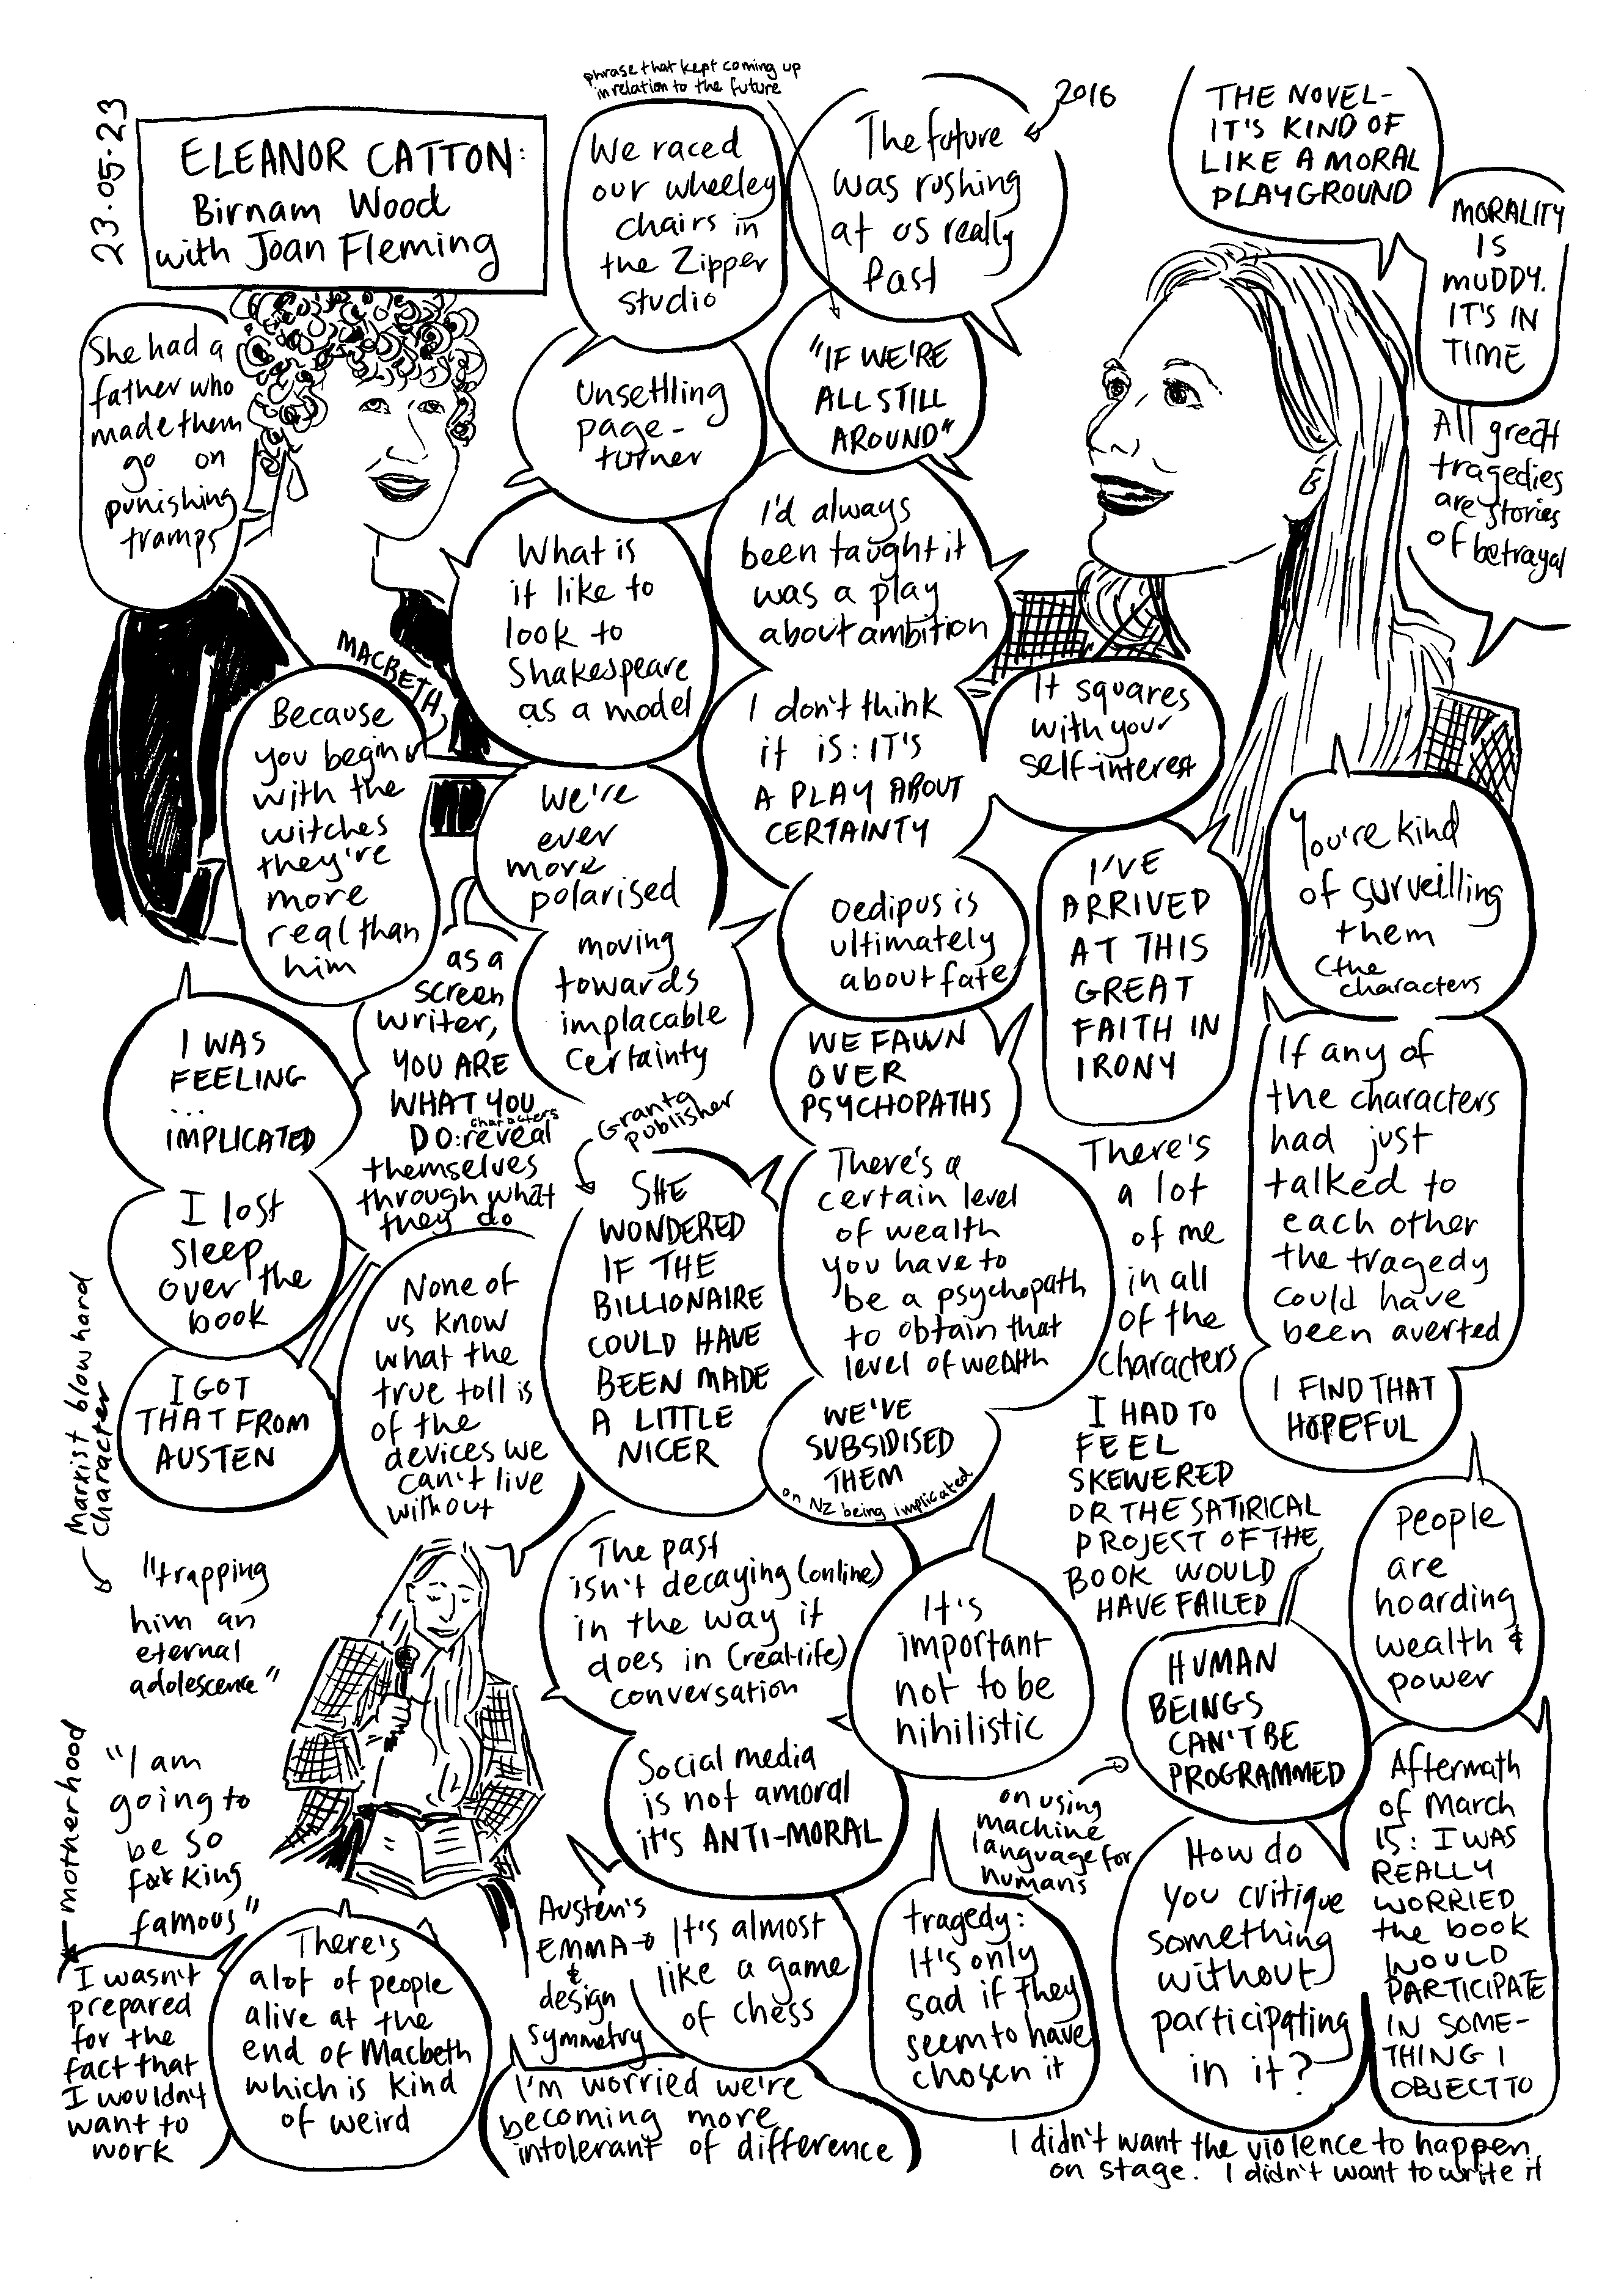 23.05.23
ELEANOR CATTON:
Birnam Wood
with Joan Fleming
phrase that kept coming up
in relation to the future
We raced
our wheeley
chairs in
the Zipper
studio
2016
The future
was rushing
at us really
fast
THE NOVEL-
IT'S KIND OF
LIKE A MORAL
PLAYGROUND
MORALITY
IS
MUDDY.
IT'S IN
TIME
She had a
father who
made them
go on
punishing
tramps
Unsettling
page-
turner
"IF WE'RE
ALL STILL
AROUND"
All great
tragedies
are stories
of betrayal
What is
it like to
look to
Shakespeare
as a model
I'd always
been taught it
was a play
about ambition
MACBETH,
Because
you begin
with the
witches
they're
more
real than
him
I don't think
it is: IT'S
A PLAY ABOUT
CERTAINTY
It squares
with your
self-interest
We're
ever
more
polarised
moving
towards
implacable
certainty
Oedipus is
ultimately
about fate
I'VE
ARRIVED
AT THIS
GREAT
FAITH IN
IRONY
You're kind
of surveilling
them
(the
characters
I WAS
FEELING
...
IMPLICATED
as a
screen
writer,
YOU ARE
WHAT YOU
DO: reveal
characters
themselves
through what
they do
WE FAWN
OVER
PSYCHOPATHS
If any of
the characters
had just
talked to
each other
the tragedy
could have
been averted
I lost
sleep
over the
book
Granta
publisher
SHE
WONDERED
IF THE
BILLIONAIRE
COULD HAVE
BEEN MADE
A LITTLE
NICER
There's a
certain level
of wealth
you have to
be a psychopath
to obtain that
level of wealth
There's
a lot
of me
in all
of the
characters
I GOT
THAT FROM
AUSTEN
None of
us know
what the
true toll is
of the
devices we
can't live
without
WE'VE
SUBSIDISED
THEM
on NZ being implicated
I HAD TO
FEEL
SKEWERED
OR THE SATIRICAL
PROJECT OF THE
BOOK WOULD
HAVE FAILED
I FIND THAT
HOPEFUL
Marxist blow hard
character
"trapping
him an
eternal
adolescence"
The past
isn't decaying (online)
in the way it
does in (real-life)
conversation
It's
important
not to be
nihilistic
People
are
hoarding
wealth &
power
HUMAN
BEINGS
CAN'T BE
PROGRAMMED
motherhood
"I am
going to
be so
f**king
famous"
Social media
is not amoral
it's ANTI-MORAL
on using
machine
language for
humans
Aftermath
of March
15: I WAS
REALLY
WORRIED
the book
WOULD
PARTICIPATE
IN SOME-
THING I
OBJECT TO
I wasn't
prepared
for the
fact that
I wouldn't
want to
work
There's
alot of people
alive at the
end of Macbeth
which is kind
of weird
Austen's
EMMA
&
design
symmetry
It's almost
like a game
of chess
tragedy:
It's only
sad if they
seem to have
chosen it
How do
you critique
something
without
participating
in it?
I'm worried we're
becoming more
intolerant of difference
I didn't want the violence to happen
on stage. I didn't want to write it